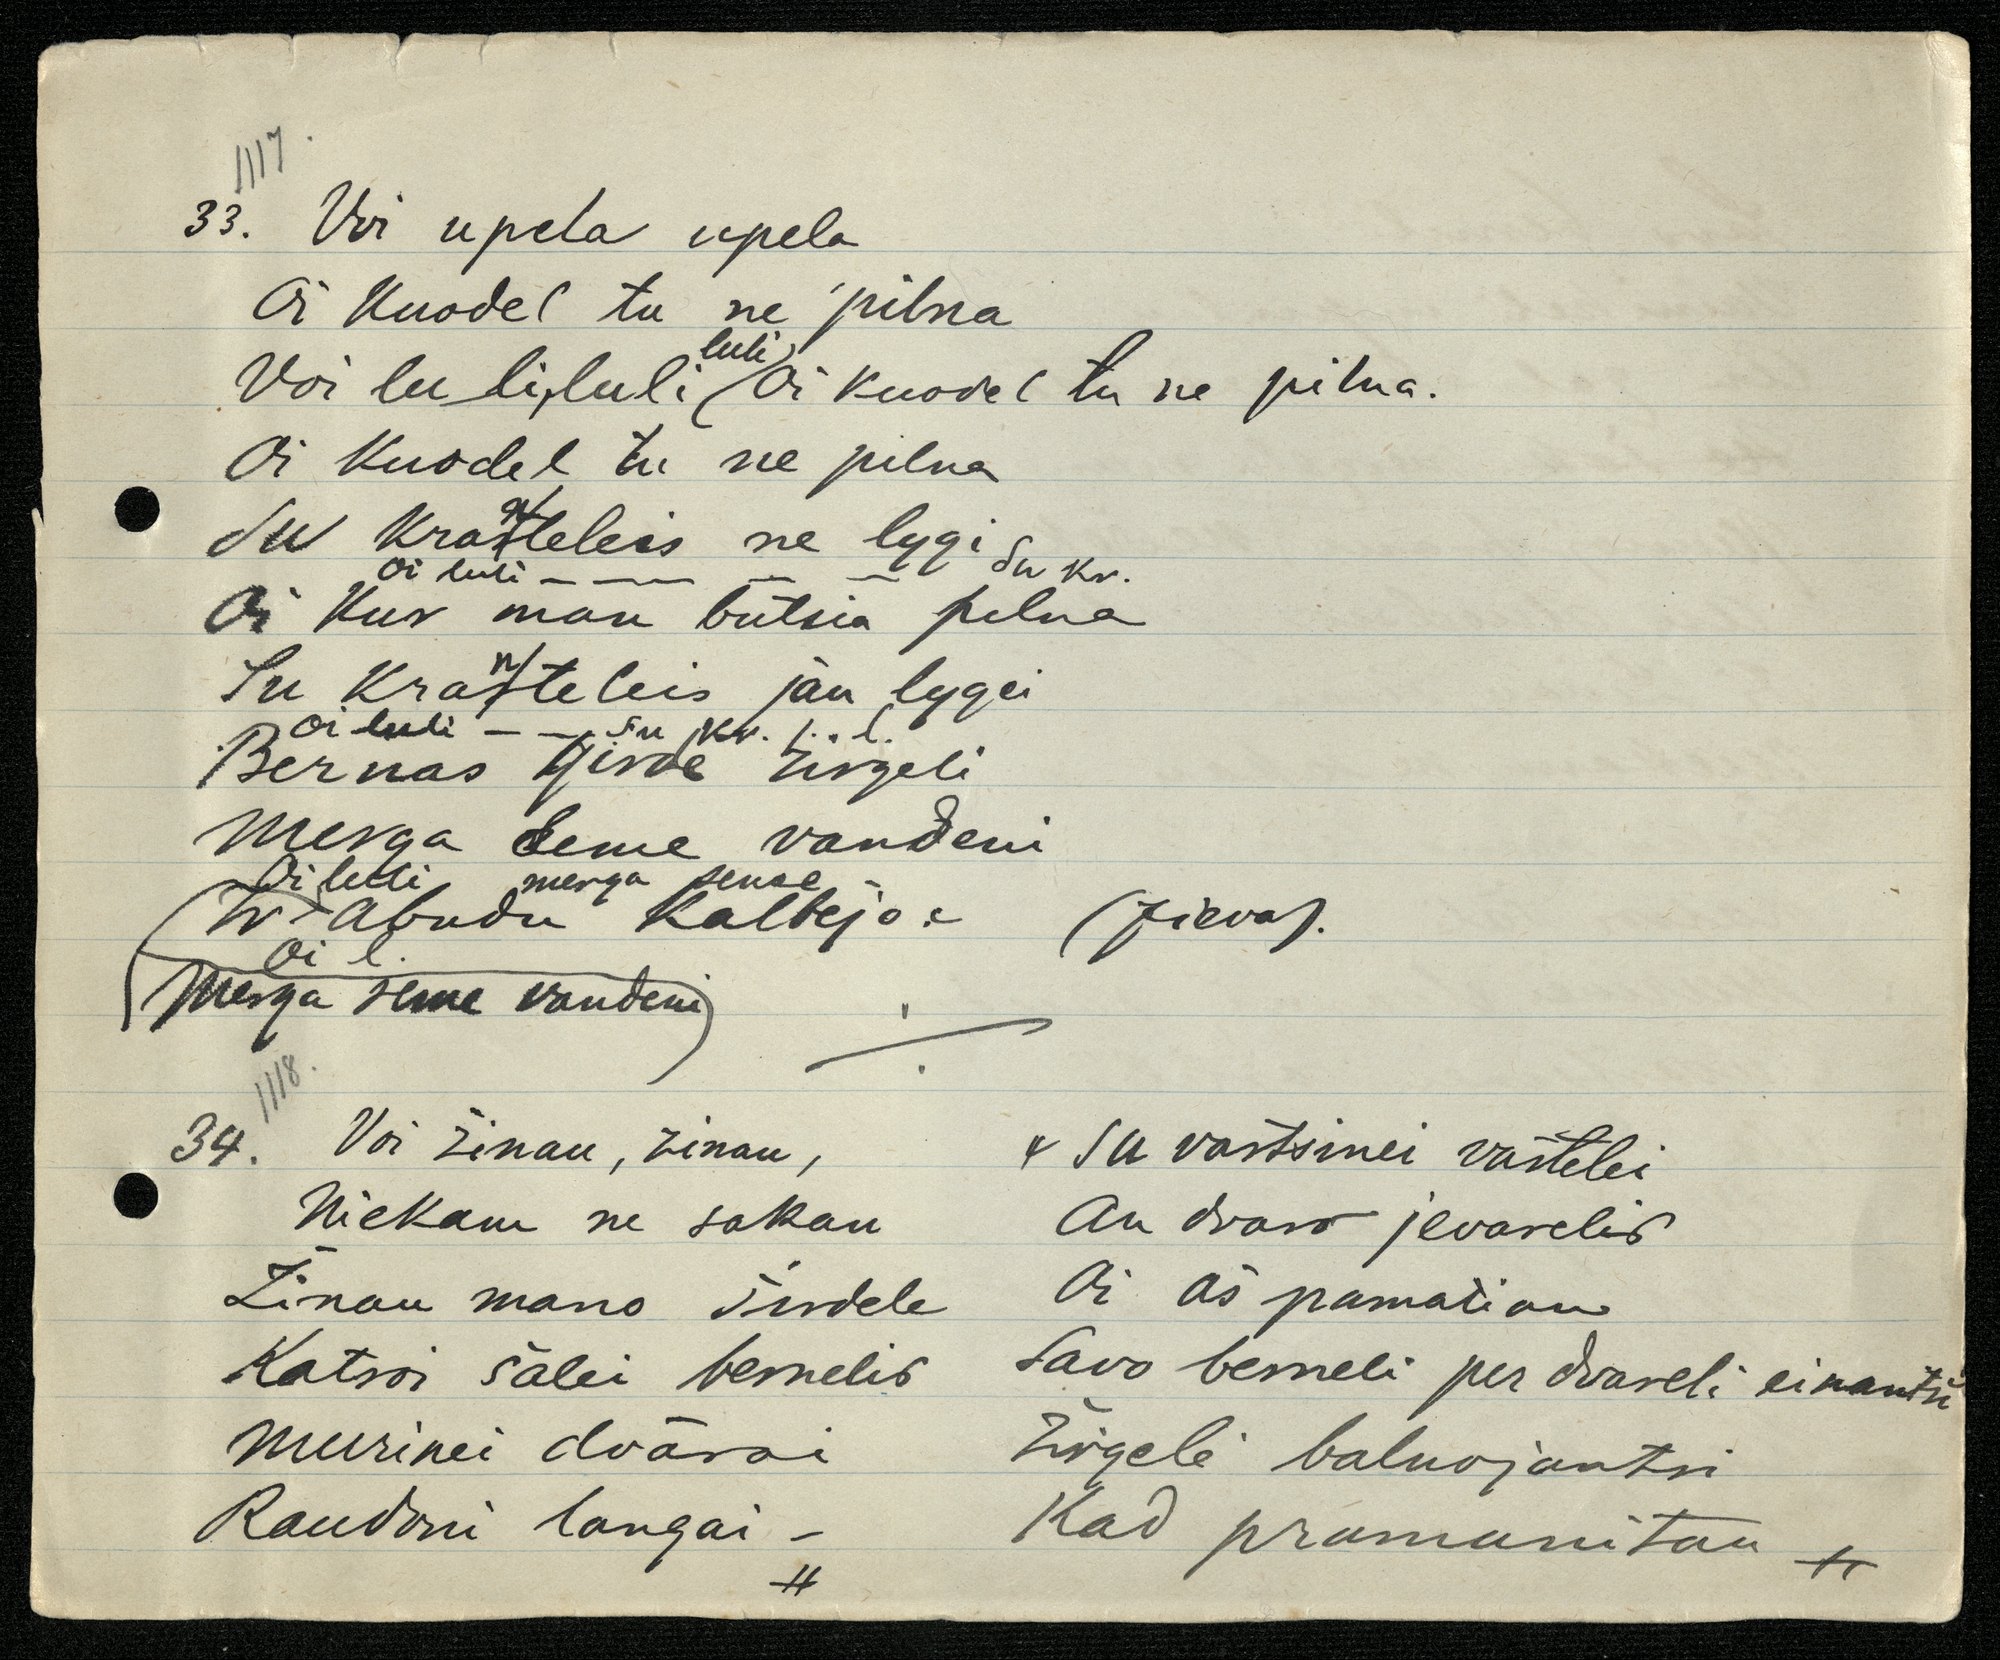 1117.
33. Voi upela upela
Oi kuodel tu ne pilna
luli
Voi lu li, luli (Oi kuodel tu ne pilna.
Oi kuodel tu ne pilna
Su kranteleis ne lygi Su kr.
Oi luli — — — —
Oi kur man butsia pilna
Su kranteleis jau lygei
Oi luli — — su kr. j. l.
Bernas girde žirgeli
Merga seme vandeni
Oi luli merga seme
Ir abudu kalbejo: (Zieva).
Oi l.
Merga seme vandeni)
1118.
34. Voi žinau, žinau,
Niekam ne sakau
Žinau mano širdele
Katroi šalei bernelis
Murinei dvārai
Raudoni langai –
Su vartsinei vartelei
An dvaro jevorelis
Oi aš pamačiau
Savo berneli per dvareli einantsi
Žirgeli balnojantsi
Kad pramanitau